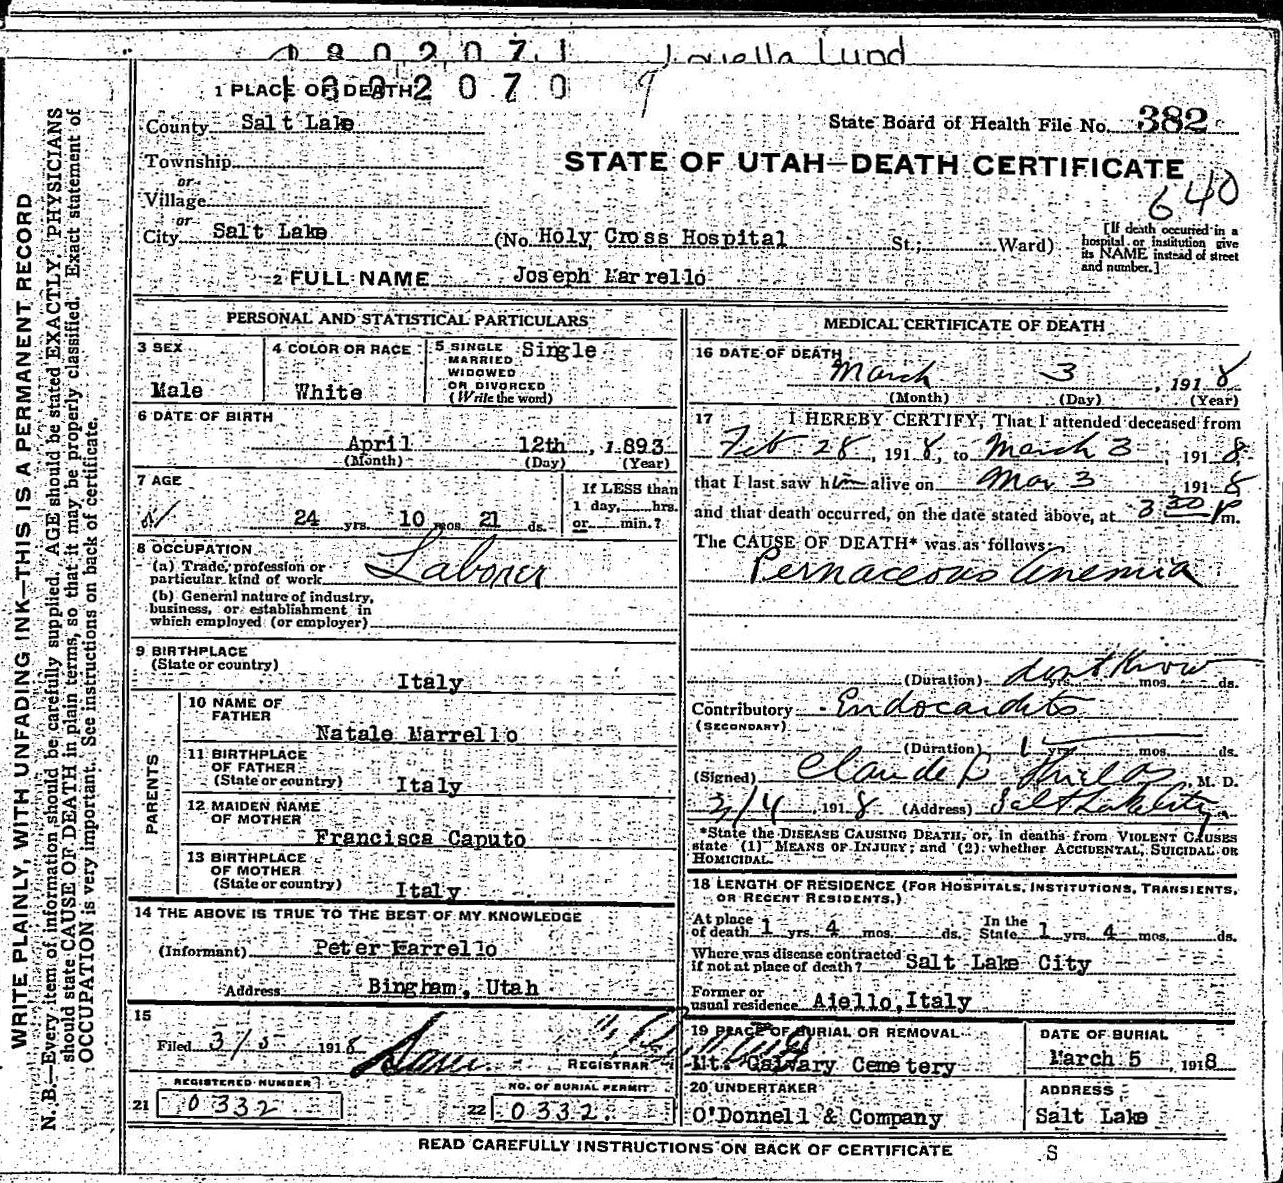 1302071 Louella Lund
1302070
1 PLACE OF DEATH
County Salt Lake
State Board of Health File No. 382
Township
STATE OF UTAH—DEATH CERTIFICATE
or
Village
640
or
City Salt Lake (No. Holy Cross Hospital St.; Ward)
[If death occurred in a hospital or institution give its NAME instead of street and number.]
2 FULL NAME Joseph Marrello
PERSONAL AND STATISTICAL PARTICULARS
3 SEX Male
4 COLOR OR RACE White
5 SINGLE MARRIED WIDOWED OR DIVORCED (Write the word) Single
6 DATE OF BIRTH
April 12th, 1893
(Month) (Day) (Year)
7 AGE
24 yrs. 10 mos. 21 ds.
If LESS than
1 day, hrs.
or min.?
8 OCCUPATION
(a) Trade, profession or
particular kind of work Laborer
(b) General nature of industry,
business, or establishment in
which employed (or employer)
9 BIRTHPLACE
(State or country)
Italy
PARENTS
10 NAME OF
FATHER
Natale Marrello
11 BIRTHPLACE
OF FATHER
(State or country) Italy
12 MAIDEN NAME
OF MOTHER
Francisca Caputo
13 BIRTHPLACE
OF MOTHER
(State or country) Italy
14 THE ABOVE IS TRUE TO THE BEST OF MY KNOWLEDGE
(Informant) Peter Marrello
Address Bingham, Utah
15
Filed 3/5 1918 REGISTRAR
REGISTERED NUMBER
21 0332
NO. OF BURIAL PERMIT
22 0332
MEDICAL CERTIFICATE OF DEATH
16 DATE OF DEATH
March 3, 1918
(Month) (Day) (Year)
17 I HEREBY CERTIFY, That I attended deceased from
Feb 28, 1918, to March 3, 1918,
that I last saw him alive on Mar 3 1918
and that death occurred, on the date stated above, at 3 30 P m.
The CAUSE OF DEATH* was as follows:
Pernaceous Anemia
(Duration) dont Know yrs. mos. ds.
Contributory Endocardits
(SECONDARY)
(Duration) 1 yrs. mos. ds.
(Signed) Claude L Shields M. D.
3/4, 1918 (Address) Salt Lake City
*State the DISEASE CAUSING DEATH, or, in deaths from VIOLENT CAUSES
state (1) MEANS OF INJURY; and (2) whether ACCIDENTAL, SUICIDAL OR
HOMICIDAL.
18 LENGTH OF RESIDENCE (FOR HOSPITALS, INSTITUTIONS, TRANSIENTS,
OR RECENT RESIDENTS.)
At place of death 1 yrs. 4 mos. ds. In the State 1 yrs. 4 mos. ds.
Where was disease contracted
if not at place of death? Salt Lake City
Former or
usual residence Aiello, Italy
19 PLACE OF BURIAL OR REMOVAL
Mt. Calvary Cemetery
DATE OF BURIAL
March 5, 1918
20 UNDERTAKER
O'Donnell & Company
ADDRESS
Salt Lake
READ CAREFULLY INSTRUCTIONS ON BACK OF CERTIFICATE S
WRITE PLAINLY, WITH UNFADING INK—THIS IS A PERMANENT RECORD
N. B.—Every item of information should be carefully supplied. AGE should be stated EXACTLY. PHYSICIANS
should state CAUSE OF DEATH in plain terms, so that it may be properly classified. Exact statement of
OCCUPATION is very important. See instructions on back of certificate.